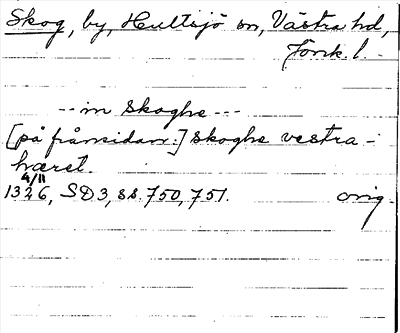 Skog, by, Hultsjö sn, Västra hd,
Jönk. l.
-- in skoghe ---
[på frånsidan:] skoghe vestra -
hæret.
1326 4/11, SD 3, ss. 750, 751. orig.